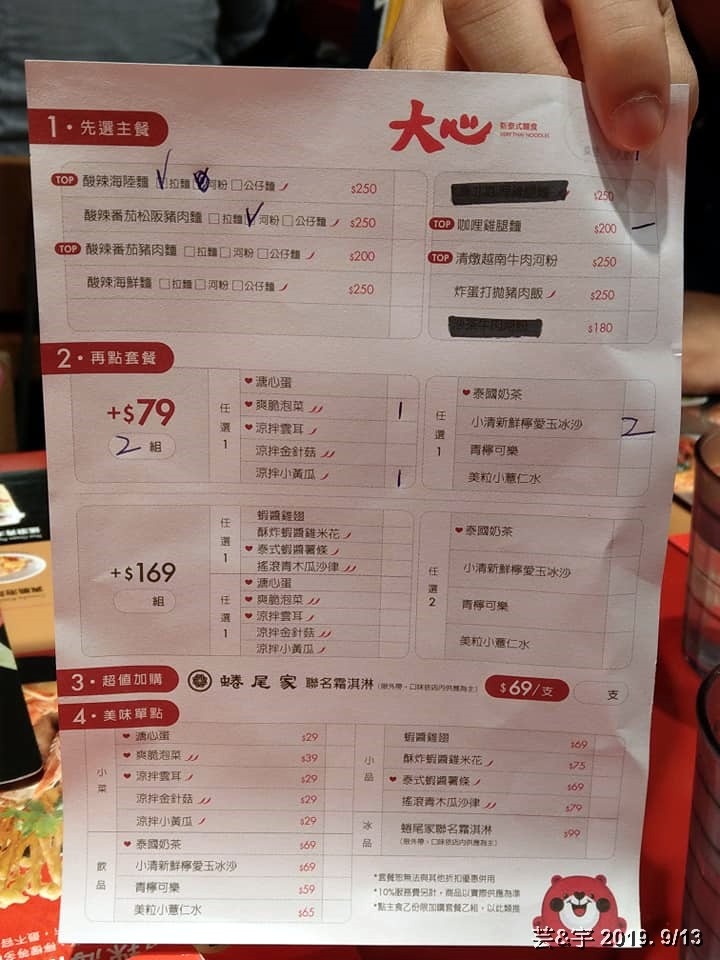 1・先選主餐
大心 新泰式麵食
VERY THAI NOODLES
TOP 酸辣海陸麵 拉麵 河粉 公仔麵 $250
酸辣番茄松阪豬肉麵 拉麵 河粉 公仔麵 $250
TOP 酸辣番茄豬肉麵 拉麵 河粉 公仔麵 $200
酸辣海鮮麵 拉麵 河粉 公仔麵 $250
$250
TOP 咖哩雞腿麵 $200 一
TOP 清燉越南牛肉河粉 $250
炸蛋打拋豬肉飯 $250
$180
2・再點套餐
+$79
2 組
任選1
溏心蛋
爽脆泡菜 1
涼拌雲耳
涼拌金針菇
涼拌小黃瓜 1
任選1
泰國奶茶
小清新鮮檸愛玉冰沙 2
青檸可樂
美粒小薏仁水
+$169
組
任選1
蝦醬雞翅
酥炸蝦醬雞米花
泰式蝦醬薯條
搖滾青木瓜沙律
任選1
溏心蛋
爽脆泡菜
涼拌雲耳
涼拌金針菇
涼拌小黃瓜
任選2
泰國奶茶
小清新鮮檸愛玉冰沙
青檸可樂
美粒小薏仁水
3・超值加購 蜷尾家 聯名霜淇淋 (限外帶,口味依店內供應為主) $69/支 支
4・美味單點
小菜
溏心蛋 $29
爽脆泡菜 $39
涼拌雲耳 $29
涼拌金針菇 $29
涼拌小黃瓜 $29
飲品
泰國奶茶 $69
小清新鮮檸愛玉冰沙 $69
青檸可樂 $59
美粒小薏仁水 $65
小品
蝦醬雞翅 $69
酥炸蝦醬雞米花 $75
泰式蝦醬薯條 $69
搖滾青木瓜沙律 $79
冰品
蜷尾家聯名霜淇淋 $99
(限外帶,口味依店內供應為主)
*套餐恕無法與其他折扣優惠併用
*10%服務費另計,商品以實際供應為準
*點主食乙份限加購套餐乙組,以此類推
芸&宇 2019. 9/13